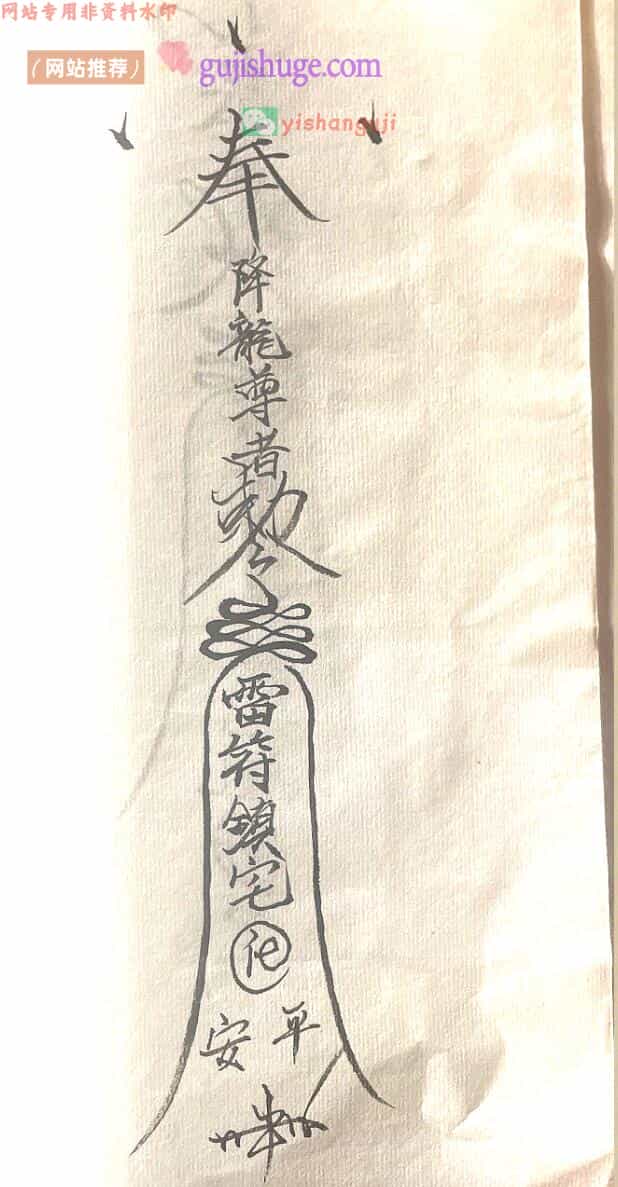 网站专用非资料水印
(网站推荐)
gujishuge.com
yishanguji
奉
降龍尊者勅令
雷符鎮宅
化
平安